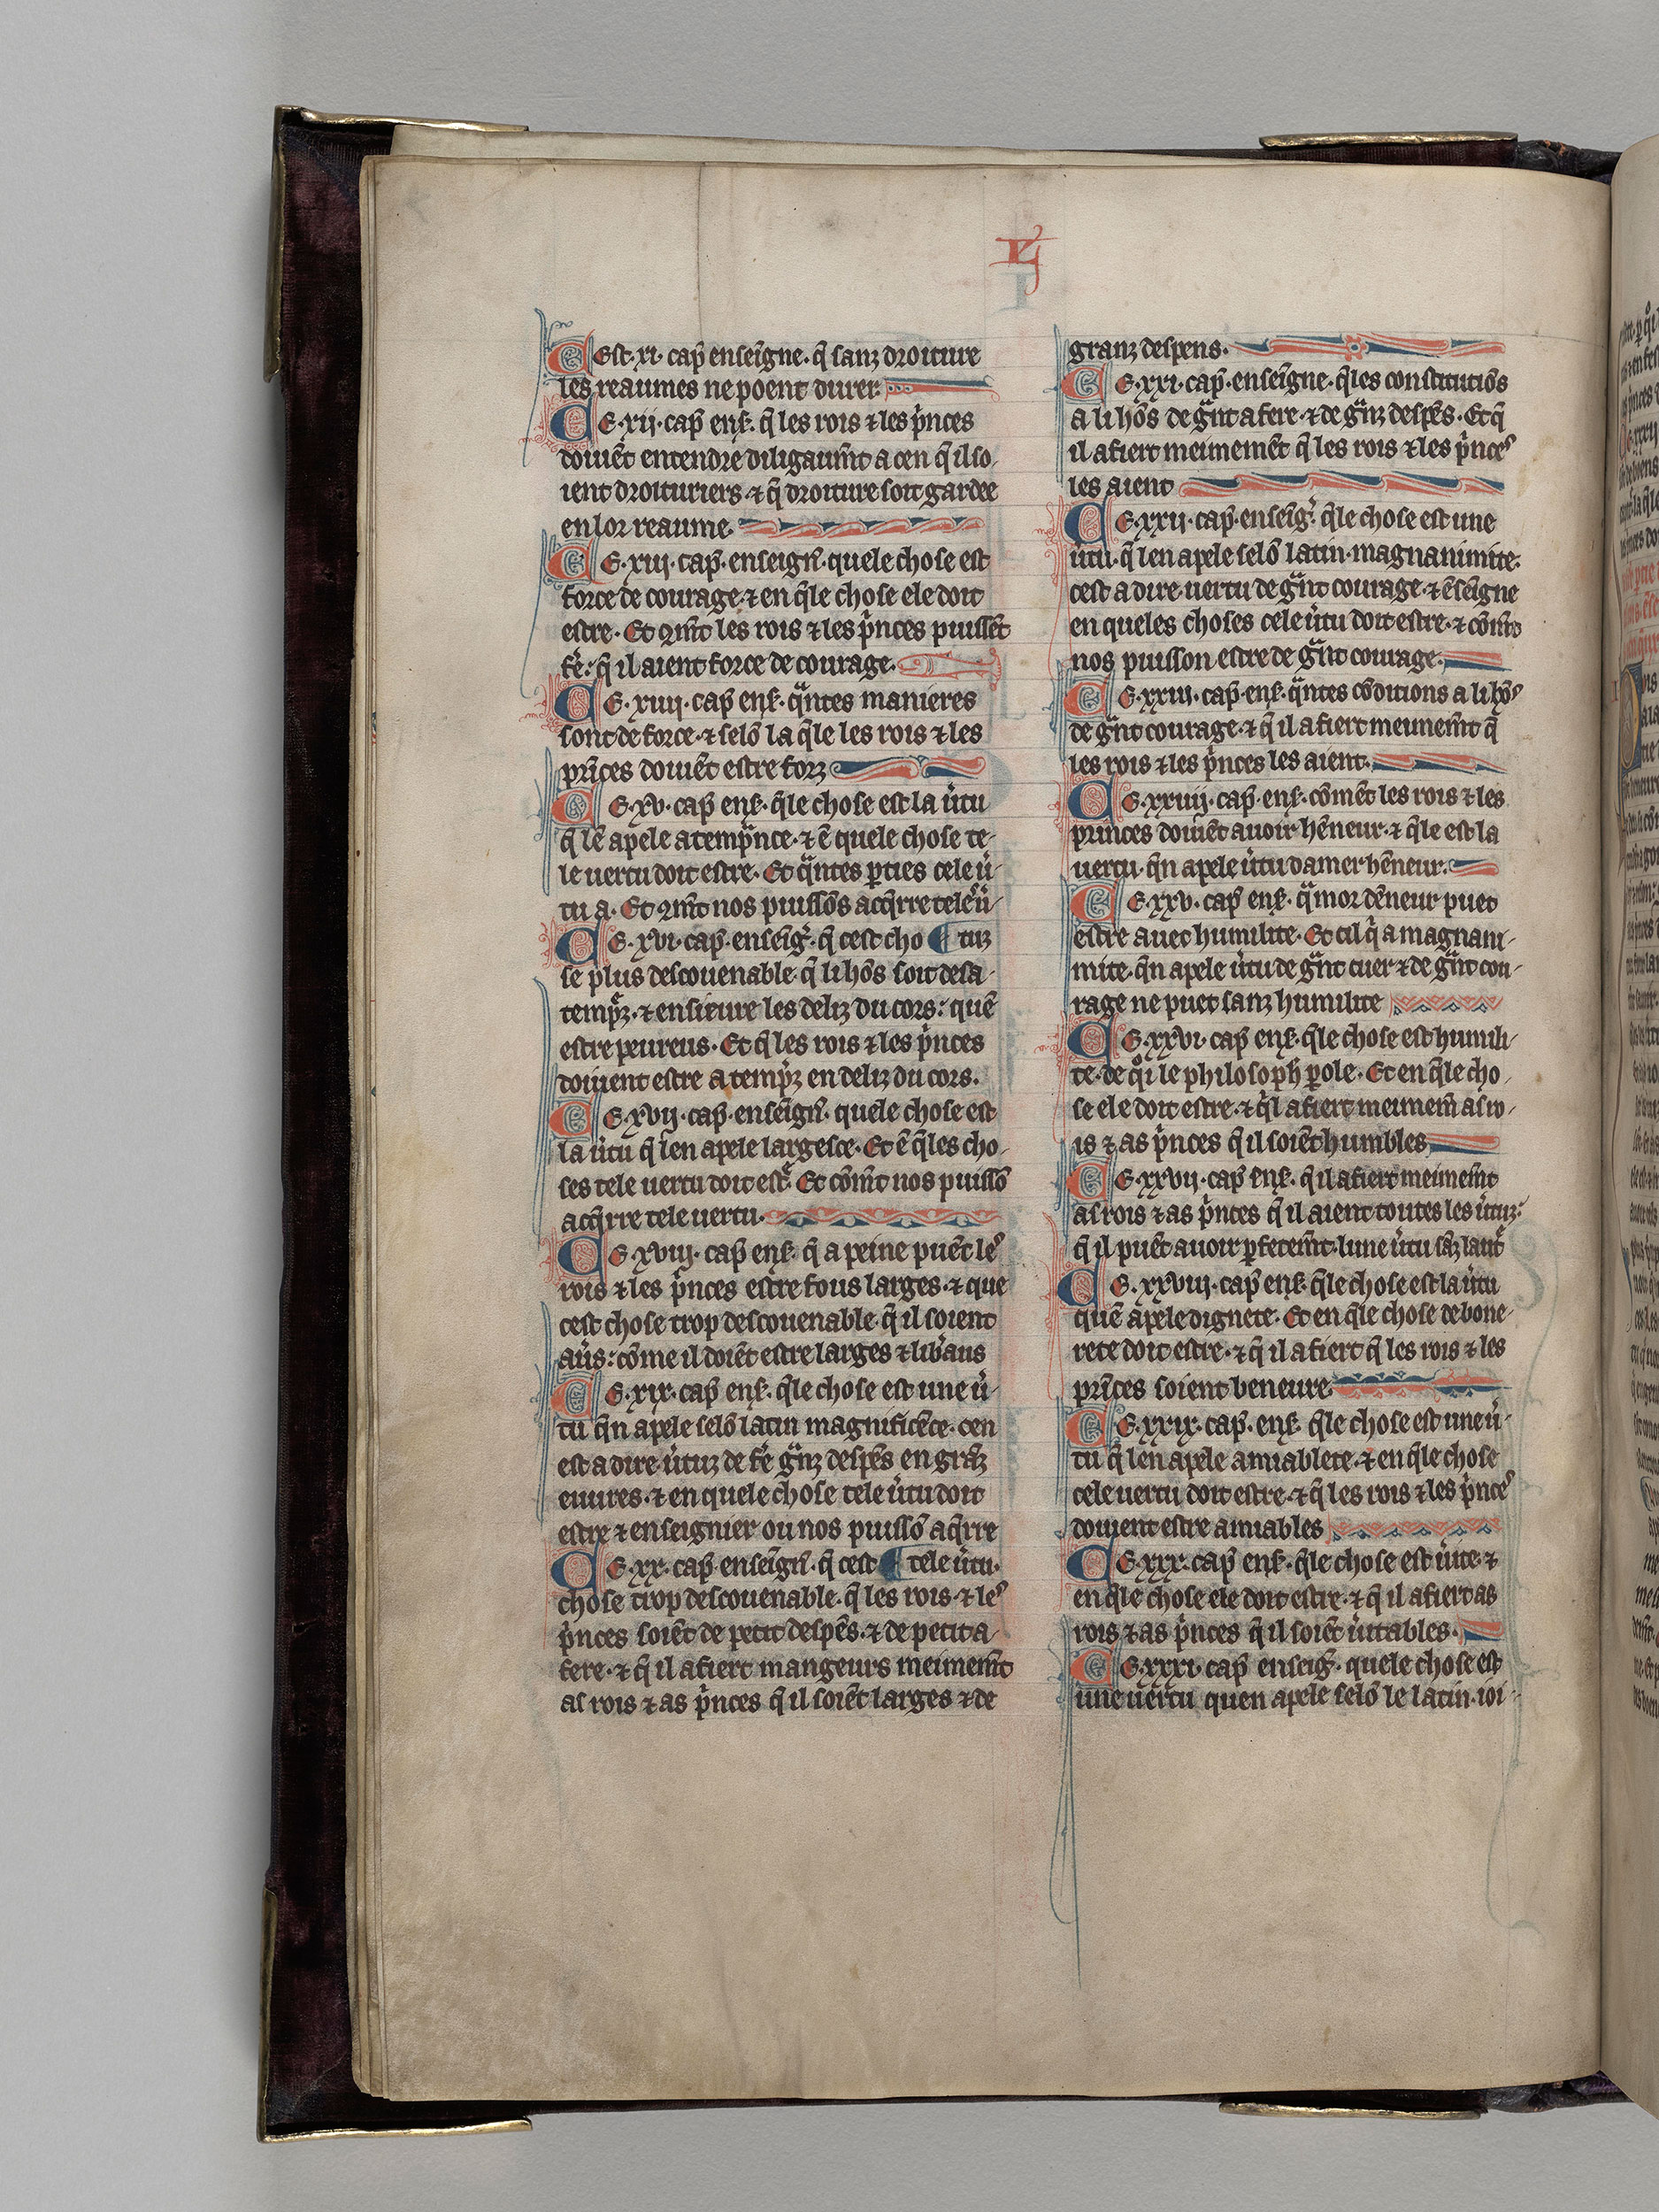 Cest .xi. cap̄ enseīgne. q̄ sanz droiture
les reaumes ne poent durer.
CE .xij. cap̄ enẜ. q̄ les rois ⁊ les pͥnces
doiuēt entendre diligaum̄t a cen q̄ il so-
ient droituriers ⁊ q̄ droiture soit gardee
en lor reaume.
CE .xiij. cap̄. enseign̄. quele chose est
force de courage ⁊ en q̄le chose ele doit
estre. Et ꝯm̄t les rois ⁊ les pͥnces puissēt
fē: q̄ il aient force de courage.
CE .xiiij. cap̄ enẜ. qͣntes manieres
sont de force. ⁊ selō la q̄le les rois ⁊ les
prīces doiuēt estre forz
CE .xv. cap̄ enẜ. q̄le chose est la u̾tu
q̄ lē apele atempͣnce. ⁊ ē quele chose te-
le uertu doit estre. Et qͣntes ꝑties cele u̾-
tu a. Et ꝯm̄t nos puissōs acq̄rre tele u̾-
CE .xvi. cap̄. enseīg̾. q̄ cest cho ¶ tuz
se plus descouenable q̄ li hōs soit desa-
tempͣz. ⁊ ensieure les deliz du cors: quē
estre peureus. Et q̄ les rois ⁊ les pͥnces
doiuent estre atempͣz en deliz du cors.
CE .xvij. cap̄. enseīgn̄. quele chose est
la u̾tu q̄ len apele largesce. Et ē q̄les cho-
ses tele uertu doit estͣ. Et cōm̄t nos puissō
acq̄rre tele uertu.
CE .xviij. cap̄ enẜ. q̄ a peine puēt leˢ
rois ⁊ les pͥnces estre fous larges. ⁊ que
cest chose trop descouenable q̄ il soient
au̾s: cōme il doiēt estre larges ⁊ lib̾aus
CE .xix. cap̄ enẜ. q̄le chose est une u̾-
tu q̄n apele selō latin magnificēce. cen
est a dire u̾tuz de fē gͣnz despēs en grāz
euures. ⁊ en quele chose tele u̾tu doit
estre ⁊ enseignier ou nos puissō aq̄rre
CE .xx. cap̄ enseīgn̄. q̄ cest ¶ tele u̾tu.
chose trop descouenable. q̄ les rois. ⁊ leˢ
pͥnces soiēt de petit despēs. ⁊ de petit a-
fere. ⁊ q̄ il afiert mangeurs meimem̄t
as rois ⁊ as pͥnces q̄ il soiēt larges ⁊ de
granz despens.
CE .xxi. cap̄. enseīgne. q̄les constitutiōs
a li hōs de gͣnt afere. ⁊ de gͣnz despēs. Et q̄
il afiert meimemēt q̄ les rois ⁊ les pͥnceˢ
les aient
CE .xxij. cap̄. enseīg̾. q̄le chose est une
u̾tu. q̄ len apele selō latin. magnanimite.
cest a dire uertu de gͣnt courage. ⁊ ēseigne
en queles choses cele u̾tu doit estre. ⁊ cōm̄t
nos puisson estre de gͣnt courage.
CE .xxiij. cap̄. enẜ. qͣntes cōditions a li hōˢ
de gͣnt courage. ⁊ q̄ il afiert meimem̄t q̄
les rois ⁊ les pͥnces les aient.
CE .xxiiij. cap̄. enẜ. cōmēt les rois ⁊ les
princes doiuēt auoir hēneur. ⁊ q̄le est la
uertu. q̄n apele u̾tu damer hēneur.
CE .xxv. cap̄ enẜ. qͣmor dēneur puet
estre auec humilite. Et cil qͥ a magnani-
mite. q̄n apele u̾tu de gͣnt cuer ⁊ de gͣnt cou-
rage ne puet sanz humilite
CE .xxvi. cap̄ enẜ. q̄le chose est humili-
te. de qͦi le philosoph̄ ꝑole. Et en q̄le cho-
se ele doit estre. ⁊ q̄l afiert meimem̄ as ro-
is ⁊ as pͥnces q̄ il soiēt humbles
CE .xxvij. cap̄ enẜ. q̄ il afiert meimem̄t
as rois ⁊ as pͥnces q̄ il aient toutes les u̾tuz:
q̄ il puēt auoir ꝑfetem̄t. lune u̾tu sāz laut̾
CE .xxviij. cap̄ enẜ q̄le chose est la u̾tu
quē apele dignete. Et en q̄le chose debone-
rete doit estre. ⁊ q̄ il afiert q̄ les rois ⁊ les
prīces soient beneure.
CE .xxix. cap̄. enẜ. q̄le chose est une u̾-
tu q̄ len apele amiablete. ⁊ en q̄le chose
cele uertu doit estre. ⁊ q̄ les rois ⁊ les pͥnceˢ
doiuent estre amiables
CE .xxx. cap̄. enẜ. q̄le chose est u̾ite. ⁊
en q̄le chose ele doit estre. ⁊ q̄ il afiert as
rois ⁊ as pͥnces q̄ il soiēt u̾itables.
CE .xxxi. cap̄ enseig̾. quele chose est
une uertu quen apele selō le latin. ioi-